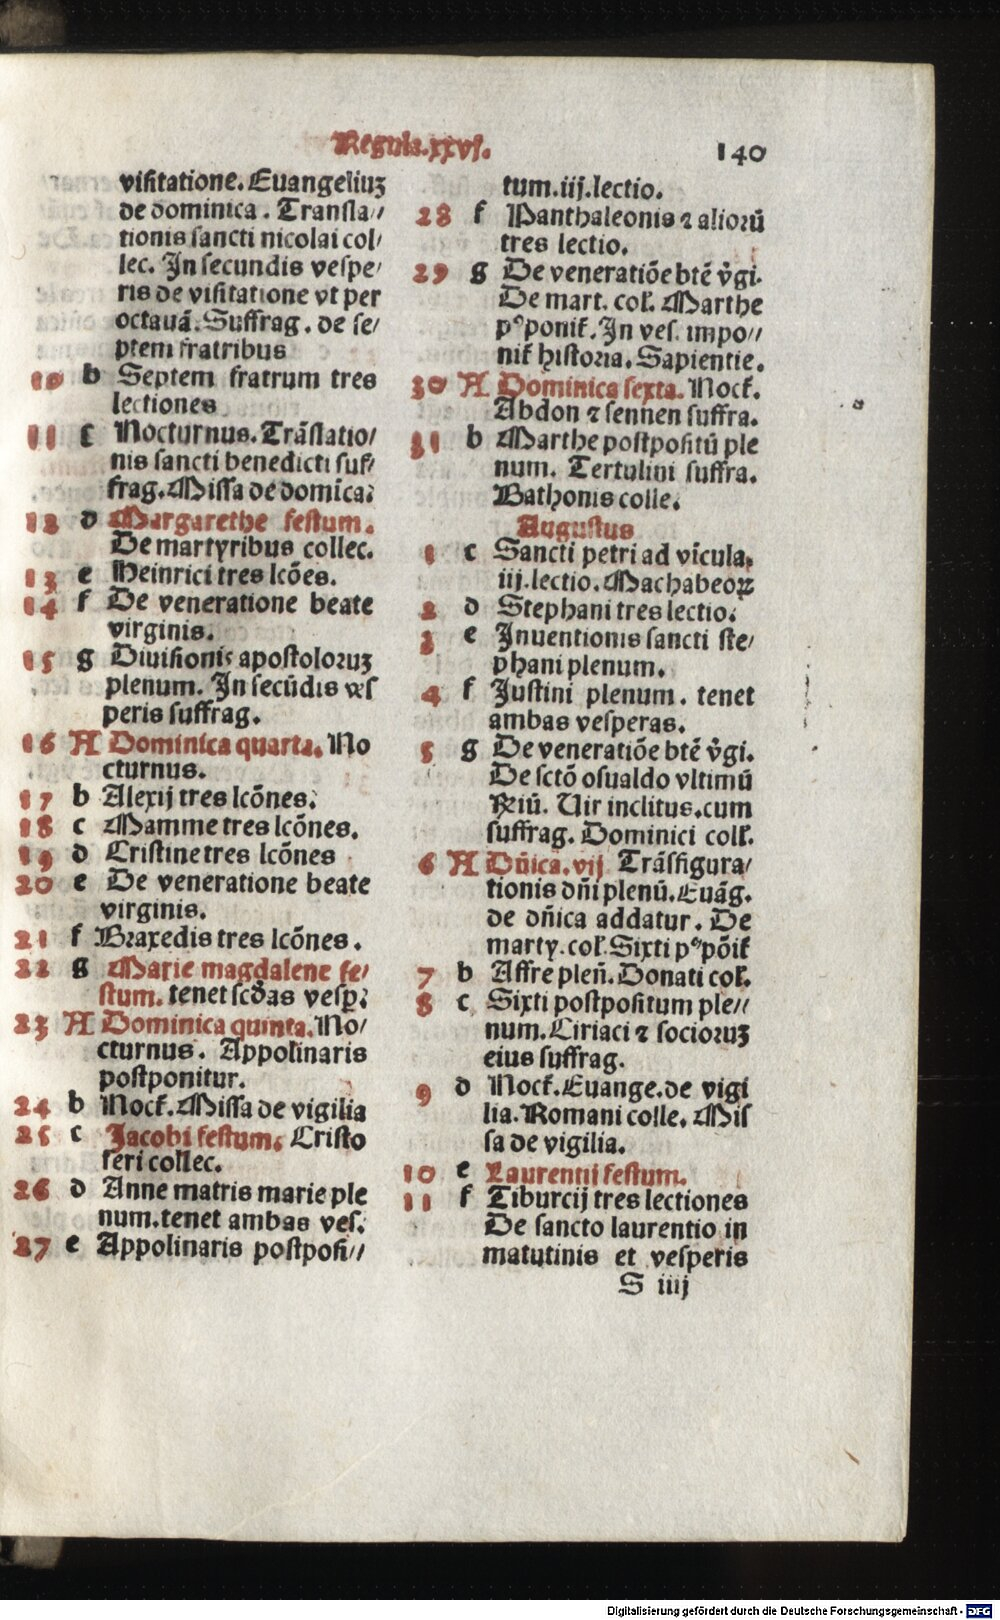 Regula.xxvj.
140
visitatione. Euangeliuʒ
de dominica. Transla⸗
tionis sancti nicolai col/
lec. In secundis vespe/
ris de visitatione vt per
octauā. Suffrag. de se/
ptem fratribus
10 b Septem fratrum tres
lectiones
11 c Nocturnus. Trāslatio/
nis sancti benedicti suf/
frag. Missa de domica.
12 d Margarethe festum.
De martyribus collec.
13 e Heinrici tres lcōes.
14 f De veneratione beate
virginis.
15 g Diuisionis apostoloruʒ
plenum. In secūdis ves
peris suffrag.
16 A Dominica quarta. No
cturnus.
17 b Alexij tres lcōnes.
18 c Mamme tres lcōnes.
19 d Cristine tres lcōnes
20 e De veneratione beate
virginis.
21 f Braxedis tres lcōnes.
22 g Marie magdalene fe/
stum. tenet scdas vesp.
23 A Dominica quinta. No/
cturnus. Appolinaris
postponitur.
24 b Noct. Missa de vigilia
25 c Jacobi festum. Cristo
feri collec.
26 d Anne matris marie ple
num. tenet ambas ves.
27 e Appolinaris postposi⸗
tum. iij. lectio.
28 f Panthaleonis ⁊ aliorū
tres lectio.
29 g De veneratiōe btē v̄gi.
De mart. col. Marthe
pꝰponit. In ves. impo⸗
nit historia. Sapientie.
30 A Dominica sexta. Noct.
Abdon ⁊ sennen suffra.
31 b Marthe postpositū ple
num. Tertulini suffra.
Bathonis colle.
Augustus
1 c Sancti petri ad vīcula.
iij. lectio. Machabeoꝝ
2 d Stephani tres lectio.
3 e Inuentionis sancti ste/
phani plenum.
4 f Justini plenum. tenet
ambas vesperas.
5 g De veneratiōe btē v̄gi.
De sctō osualdo vltimū
Rx̄iū. Uir inclitus. cum
suffrag. Dominici coll.
6 A Dn̄ica. vij Trāsfigura/
tionis dn̄i plenū. Euāg.
de dn̄ica addatur. De
marty. col. Sixti pꝰpōit
7 b Affre plen̄. Donati col.
8 c Sixti postpositum ple⸗
num. Ciriaci ⁊ socioruʒ
eius suffrag.
9 d Noct. Euange. de vigi
lia. Romani colle. Mis
sa de vigilia.
10 e Laurentij festum.
11 f Tiburcij tres lectiones
De sancto laurentio in
matutinis et vesperis
S iiij
Digitalisierung gefördert durch die Deutsche Forschungsgemeinschaft - DFG